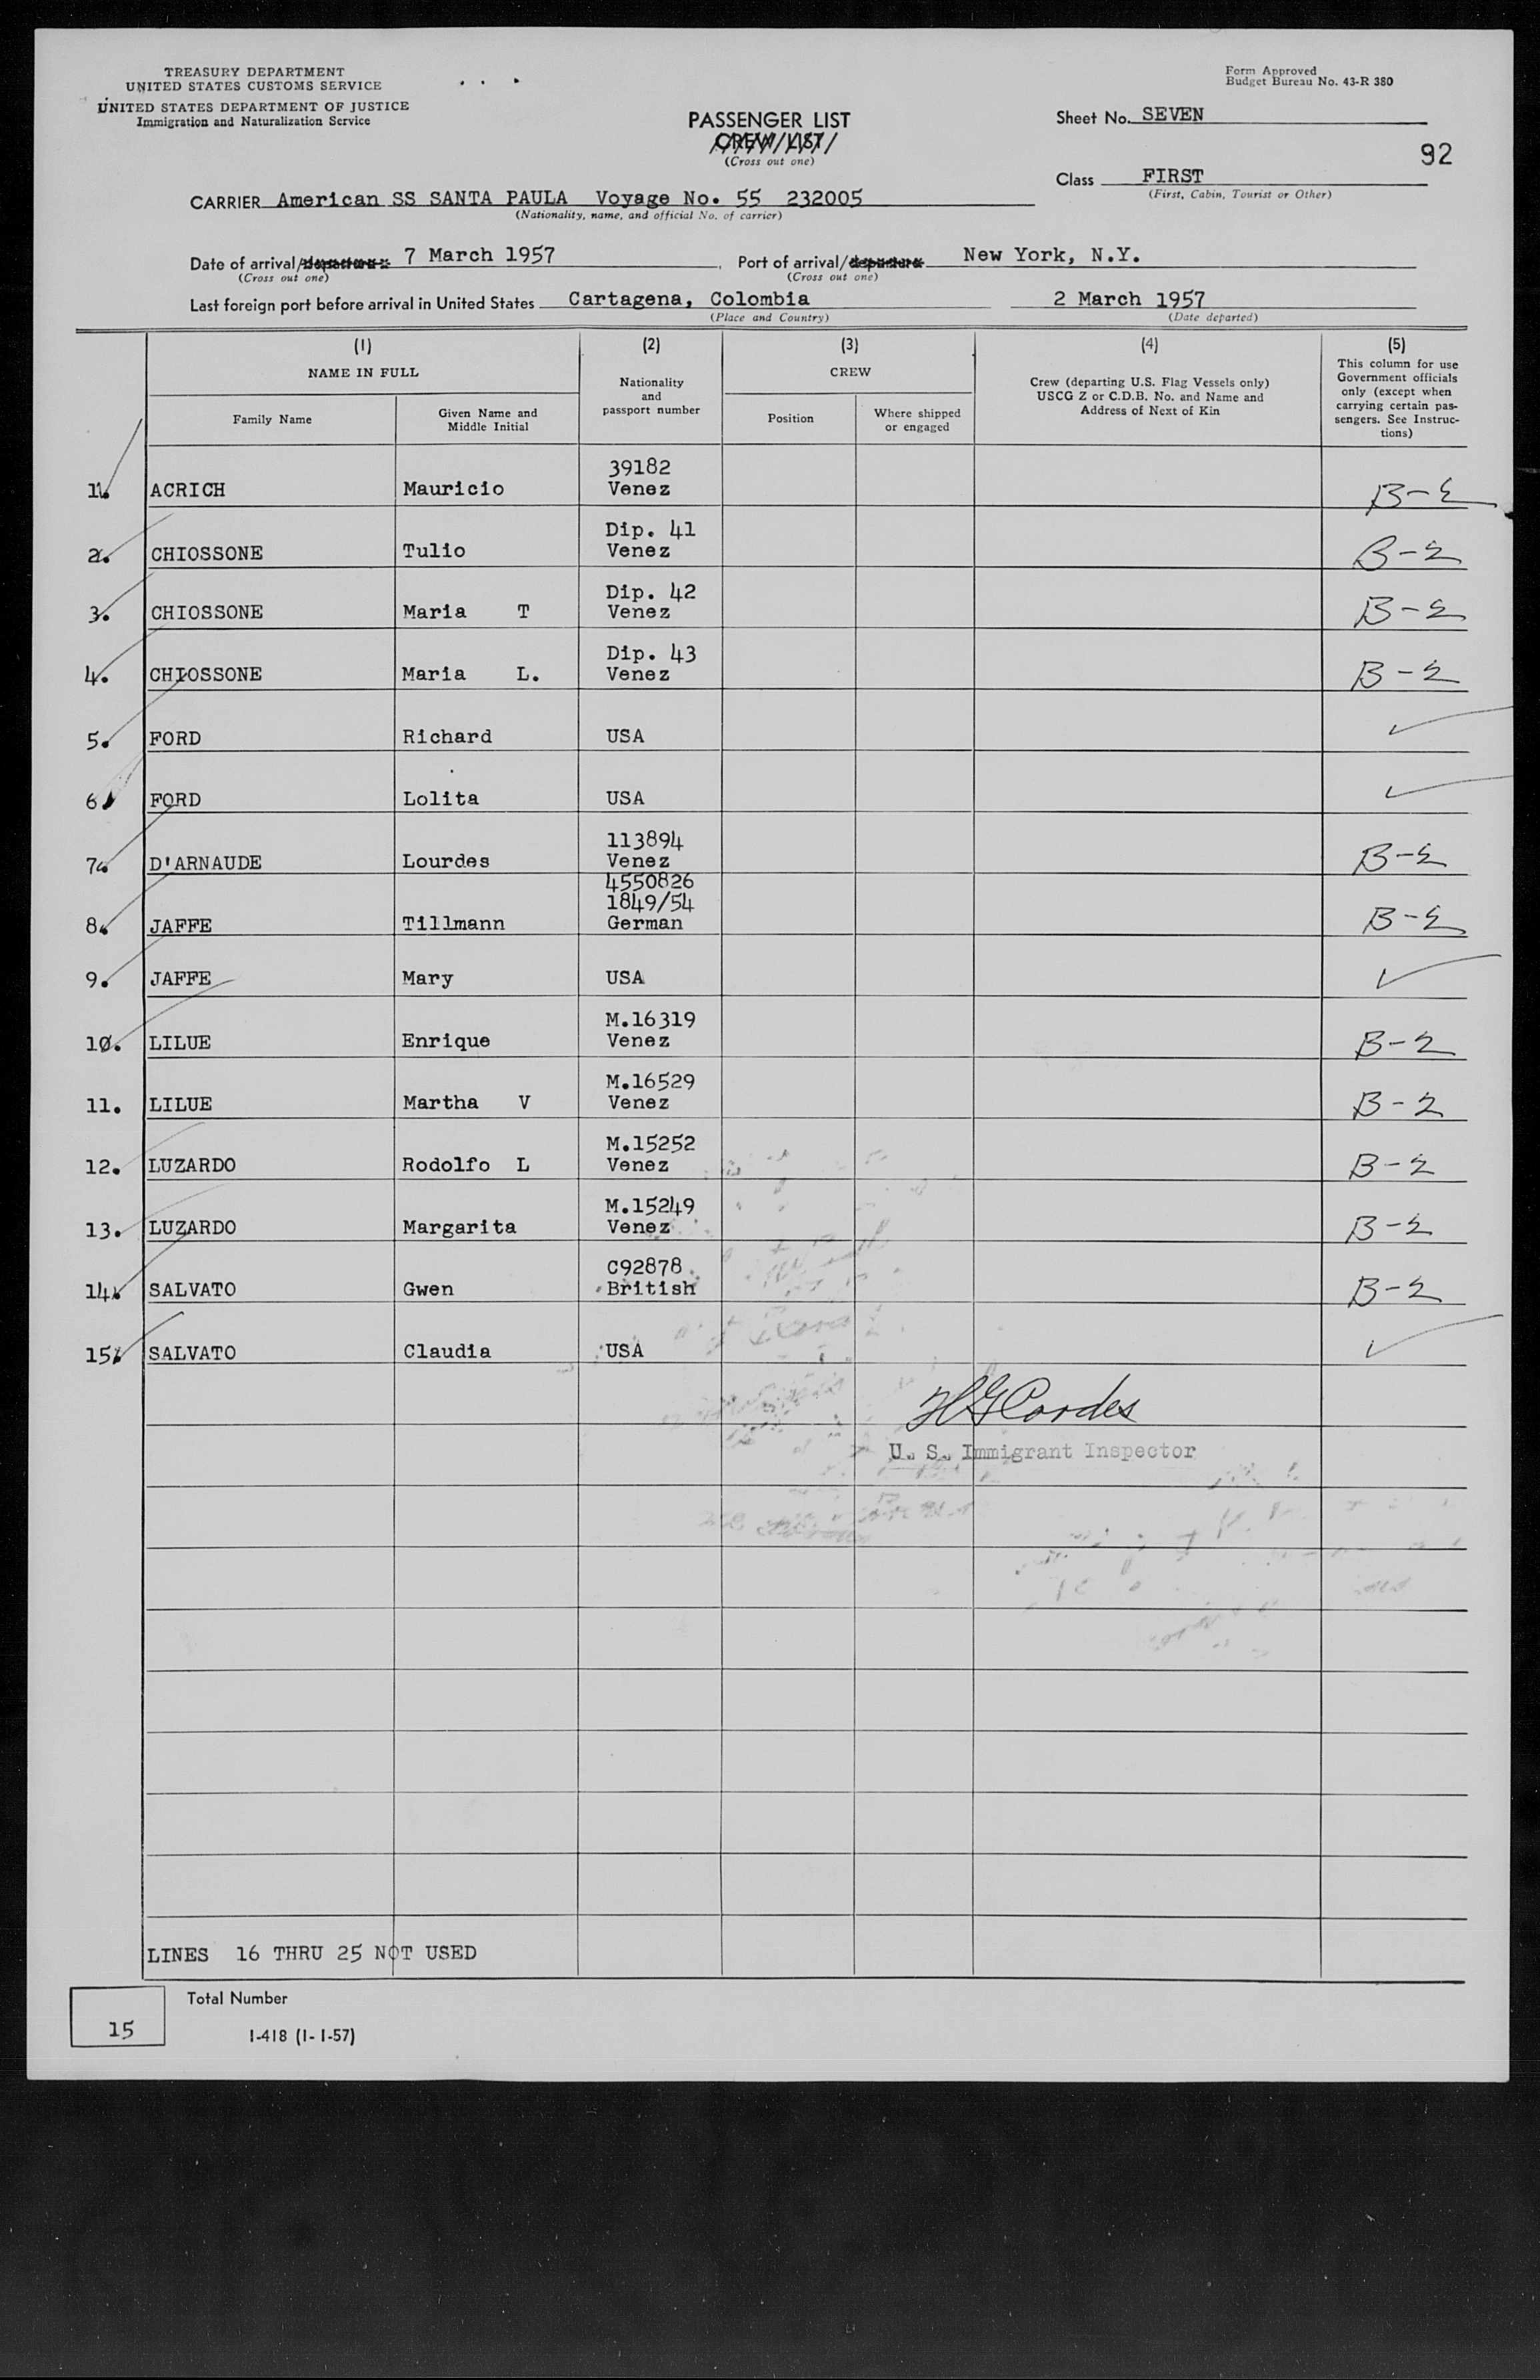 TREASURY DEPARTMENT
UNITED STATES CUSTOMS SERVICE
UNITED STATES DEPARTMENT OF JUSTICE
Immigration and Naturalization Service
Form Approved
Budget Bureau No. 43-R 380
PASSENGER LIST
CREW LIST
(Cross out one)
Sheet No. SEVEN
92
Class FIRST
(First, Cabin, Tourist or Other)
CARRIER American SS SANTA PAULA Voyage No. 55 232005
(Nationality, name, and official No. of carrier)
Date of arrival/departure 7 March 1957, Port of arrival/departure New York, N.Y.
(Cross out one) (Cross out one)
Last foreign port before arrival in United States Cartagena, Colombia 2 March 1957
(Place and Country) (Date departed)
(1) (2) (3) (4) (5)
NAME IN FULL
Family Name
Given Name and
Middle Initial
Nationality
and
passport number
CREW
Position
Where shipped
or engaged
Crew (departing U.S. Flag Vessels only)
USCG Z or C.D.B. No. and Name and
Address of Next of Kin
This column for use
Government officials
only (except when
carrying certain pas-
sengers. See Instruc-
tions)
39182
1. ACRICH Mauricio Venez B-2
Dip. 41
2. CHIOSSONE Tulio Venez B-2
Dip. 42
3. CHIOSSONE Maria T Venez B-2
Dip. 43
4. CHIOSSONE Maria L. Venez B-2
5. FORD Richard USA ✓
6. FORD Lolita USA ✓
113894
7. D'ARNAUDE Lourdes Venez B-2
4550826
1849/54
8. JAFFE Tillmann German B-2
9. JAFFE Mary USA ✓
M.16319
10. LILUE Enrique Venez B-2
M.16529
11. LILUE Martha V Venez B-2
M.15252
12. LUZARDO Rodolfo L Venez B-2
M.15249
13. LUZARDO Margarita Venez B-2
C92878
14. SALVATO Gwen British B-2
15. SALVATO Claudia USA ✓
HG Cordes
U. S. Immigrant Inspector
LINES 16 THRU 25 NOT USED
Total Number
15
I-418 (1-1-57)